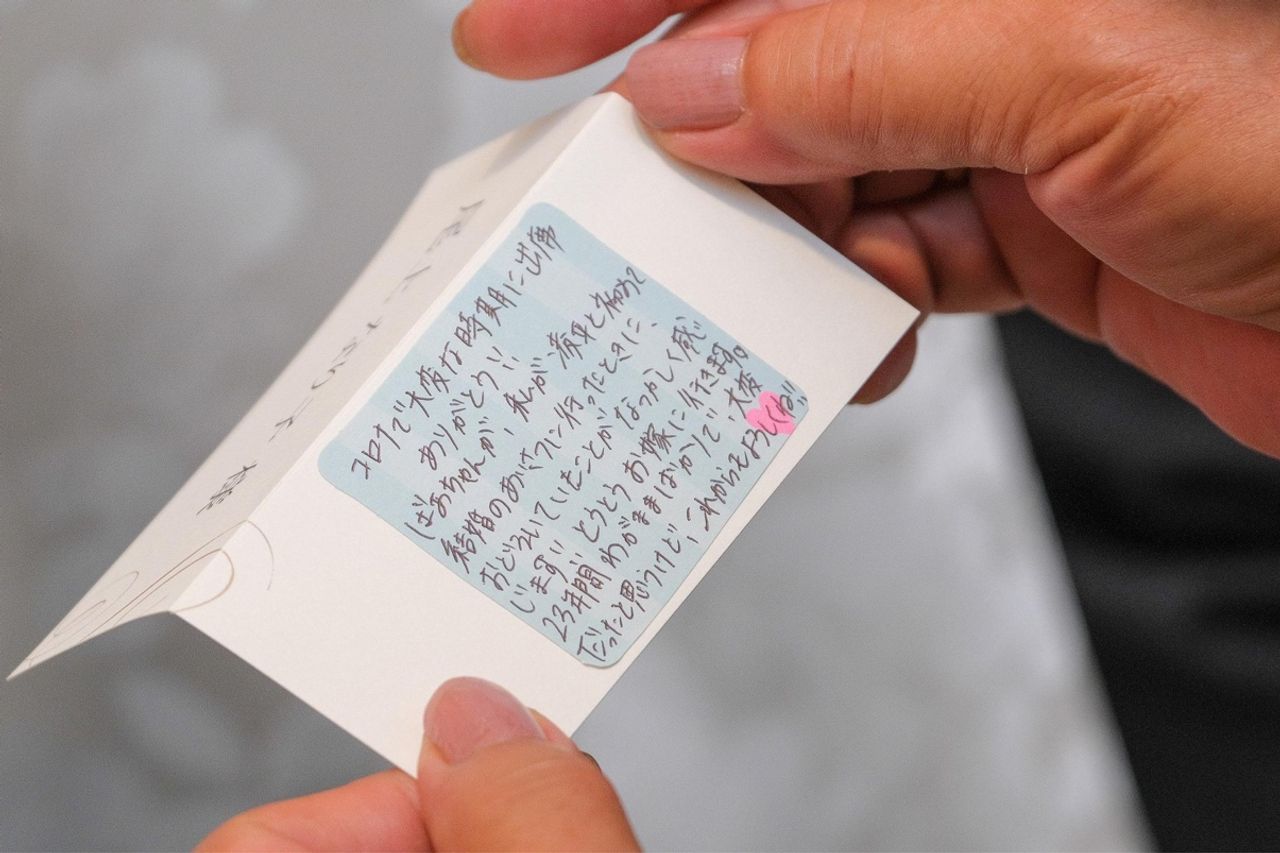 様
コロナで大変な時期に出席
ありがとう!!
ばあちゃんが、私が、平と初めて
結婚のあいさつに行ったときに、
おどろいていたことがなつかしく感
じます!! とうとうお嫁に行きます。
23年間わがままばかりで、大変
だったと思うけど、これからもよろしくね!!